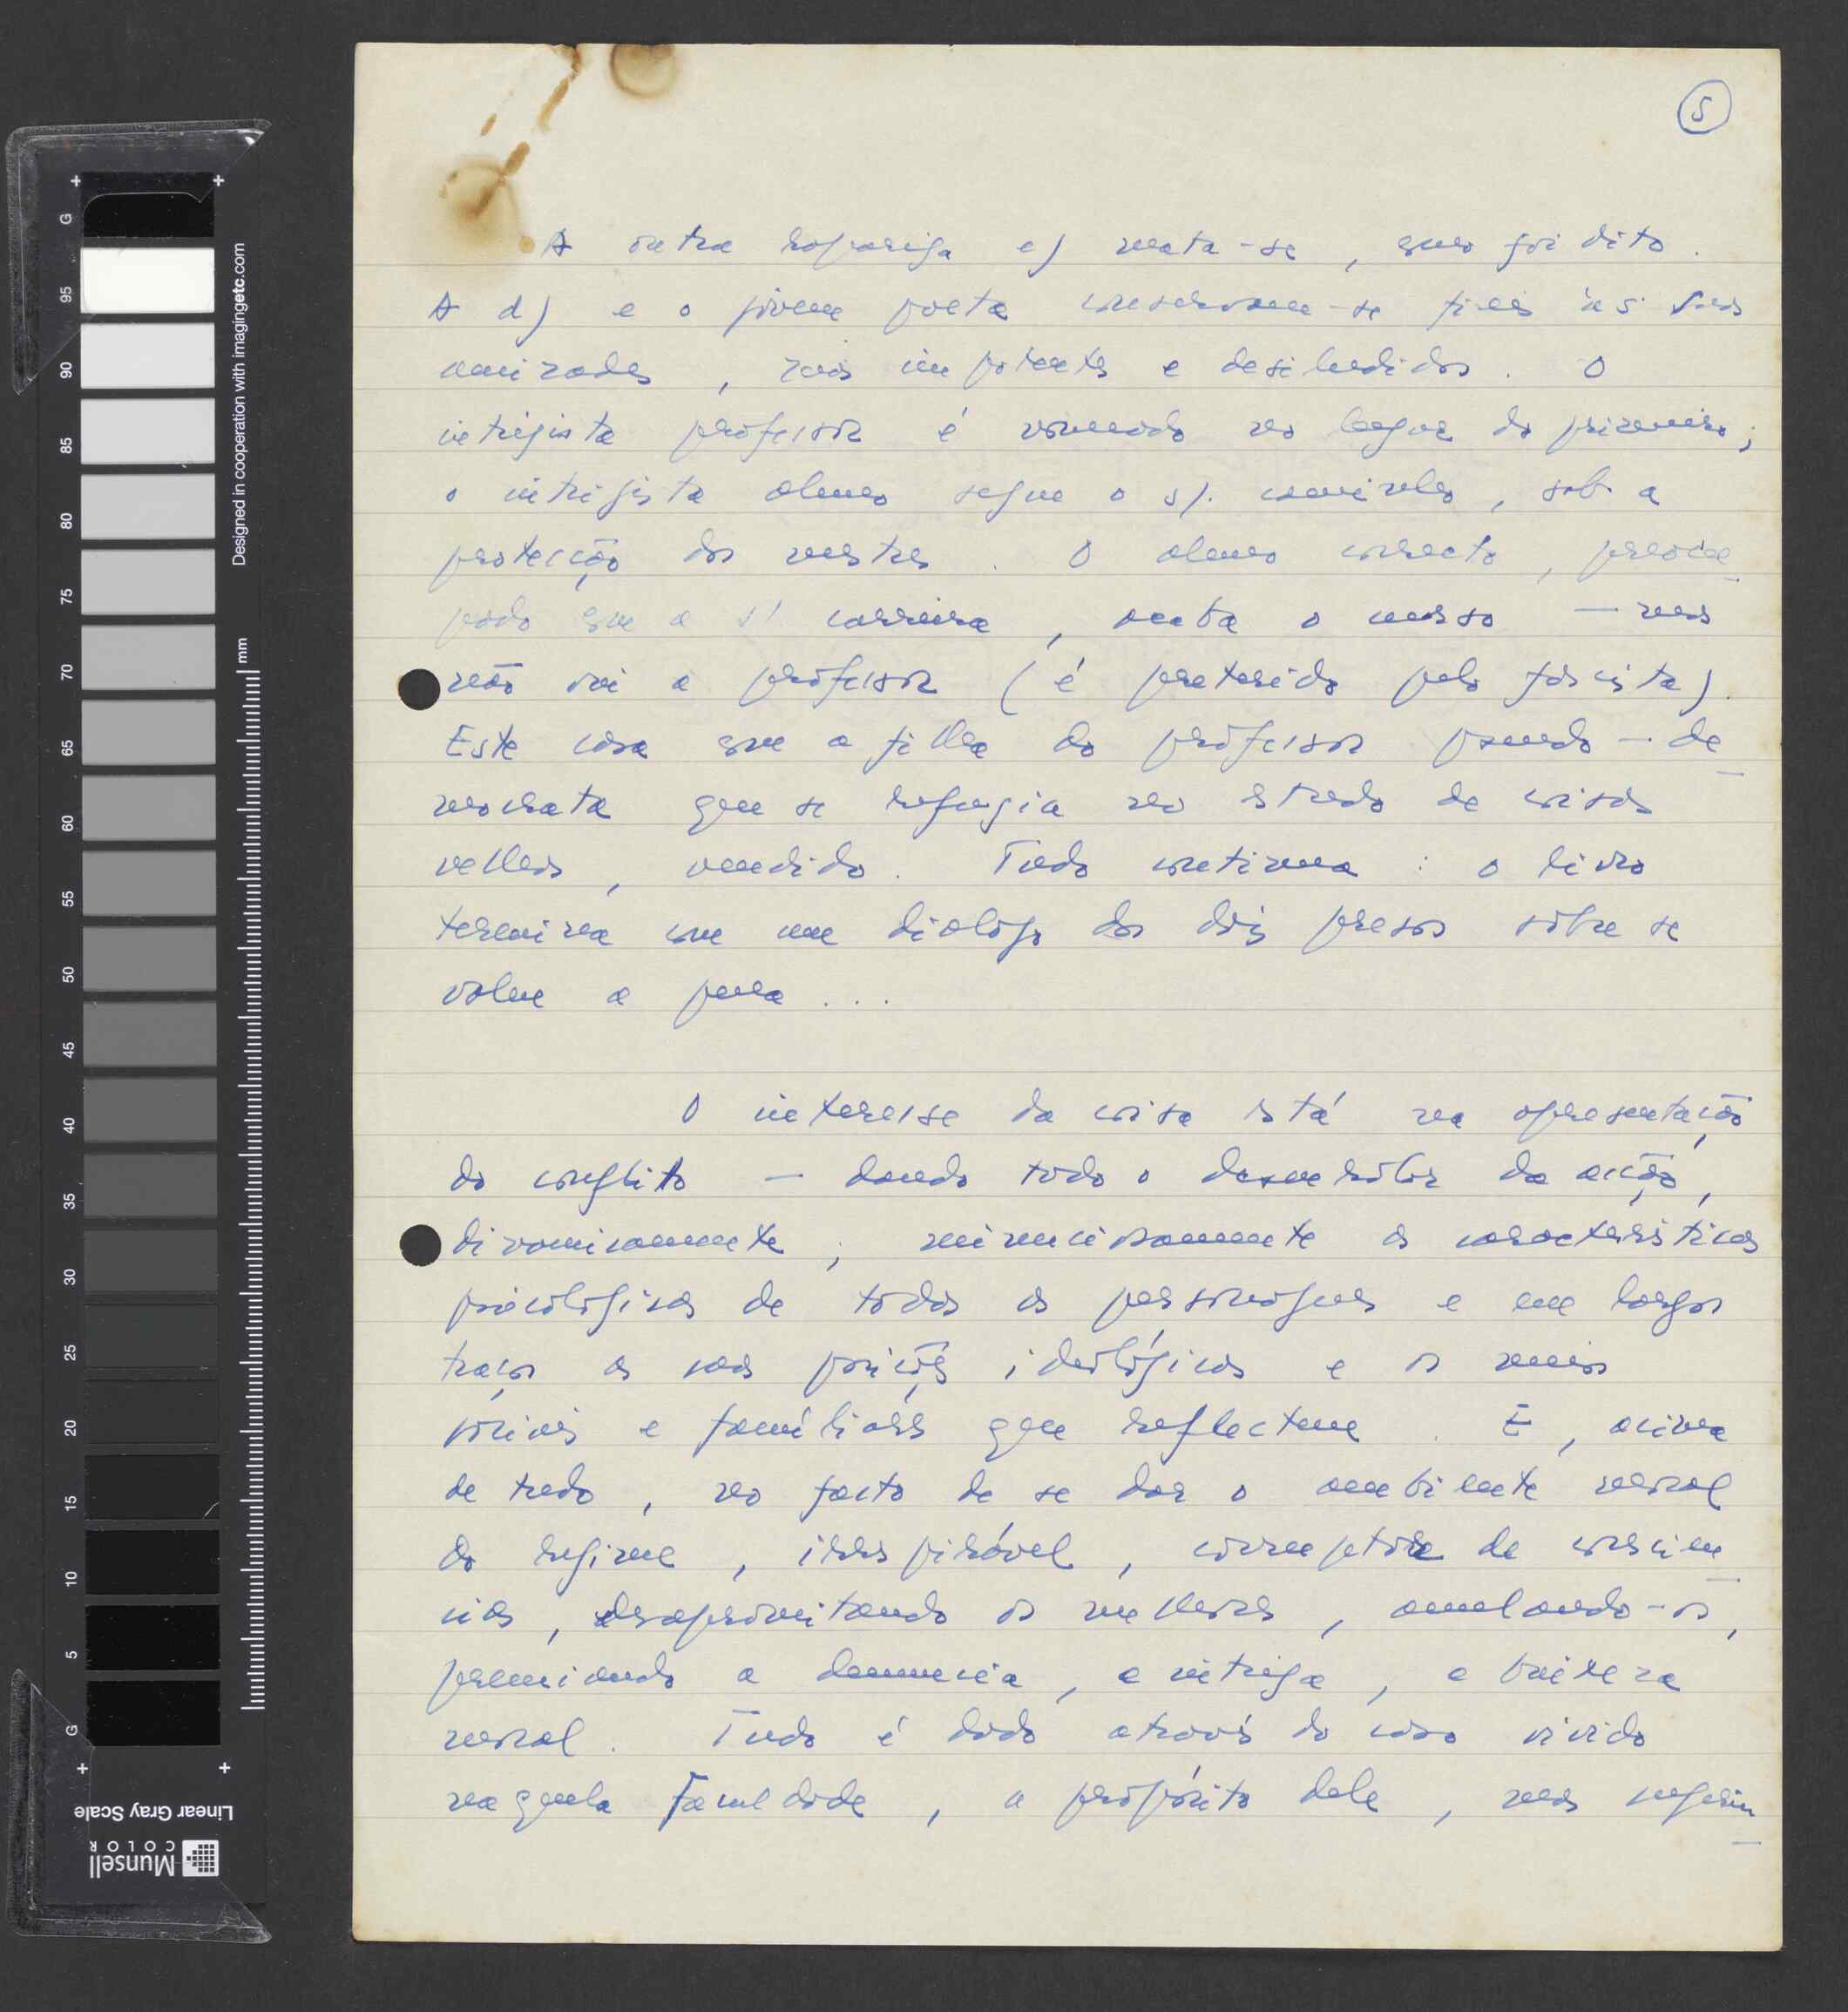 5
A outra rapariga c) mata-se, como foi dito.
A d) e o jovem poeta conservam-se fieis às suas
amizades, mas impotentes e desiludidos. O
intriguista professor é nomeado no lugar do primeiro;
o intriguista aluno segue o s/. caminho, sob a
protecção dos mestres. O aluno correcto, preocu
pado com a s/ carreira, acaba o curso — mas
não vai a professor (é preterido pelo fascista).
Este casa com a filha do professor pseudo-de
mocrata que se refugia no estudo de coisas
velhas, vendido. Tudo continua: o livro
termina com um diálogo dos dois presos sôbre se
valeu a pena...
O interesse da coisa está na apresentação
do conflito — dando todo o desenrolar da acção,
dinamicamente; minuciosamente as caracteristicas
psicológicas de todos os personagens e em largos
traços as suas posições ideológicas e os meios
sociais e familiares que reflectem. E, acima
de tudo, no facto de se dar o ambiente moral
do regime, irrespirável, corruptor de consciên
cias, desaproveitando os melhores, anulando-os,
premiando a denuncia, a intriga, a baixeza
moral. Tudo é dado através do caso vivido
naquela Faculdade, a propósito dele, mas sugerin
Designed in cooperation with imagingetc.com
mm
+ +
G
95
90
85
80
75
70
65
60
55
50
45
40
35
30
25
20
15
10
5
G
+ +
Linear Gray Scale
Munsell
COLOR